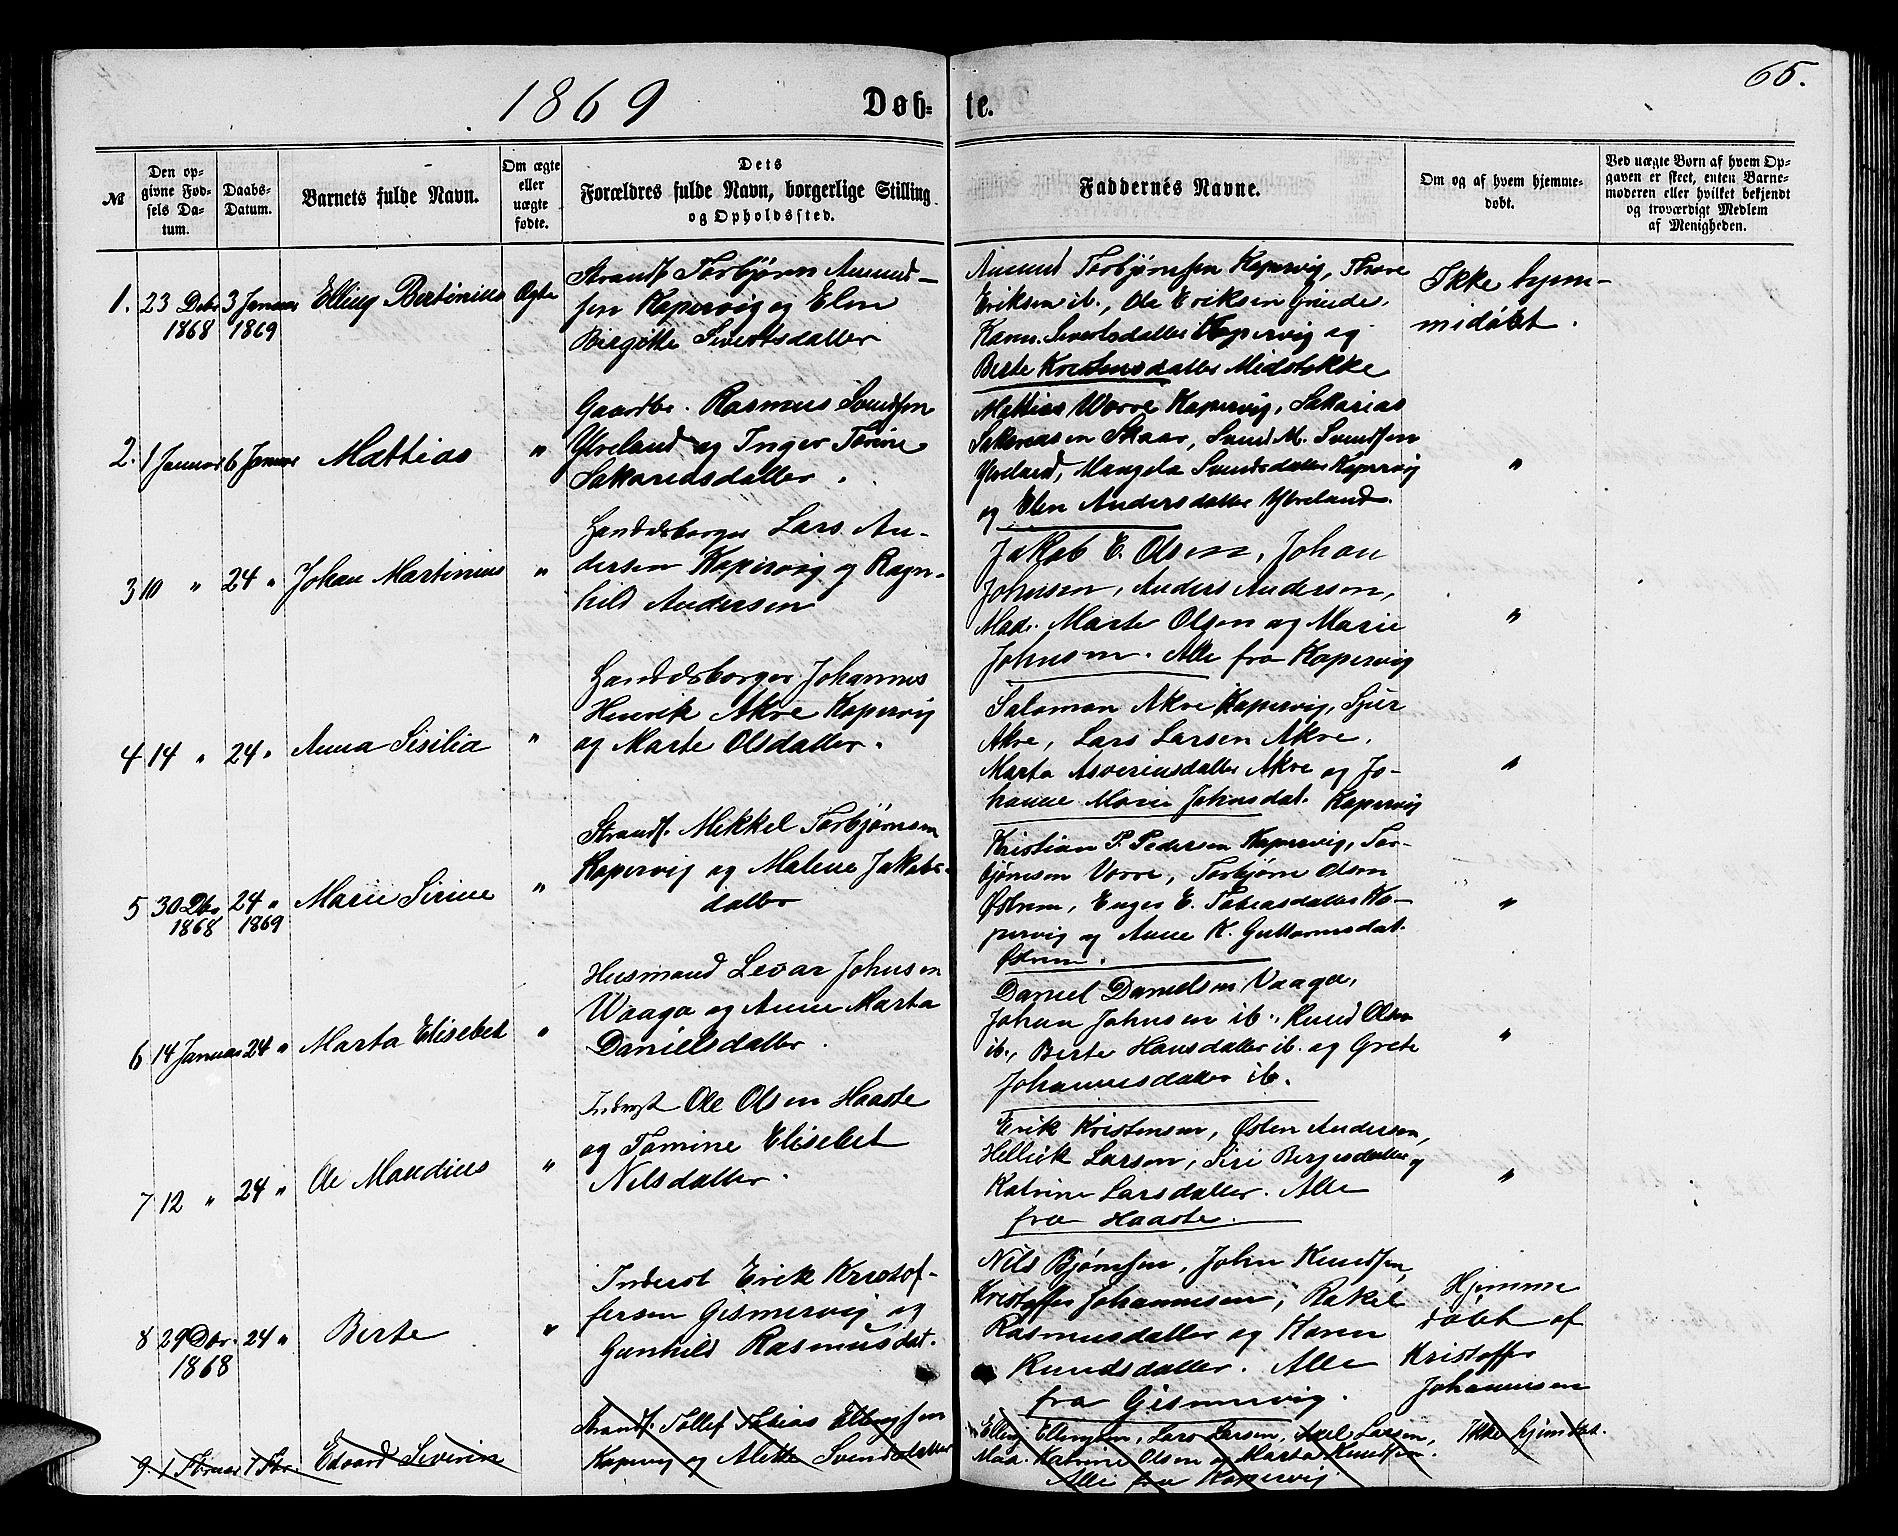 65.
1869 Døb-te.
№
Den opgivne Fødsels Datum.
Daabs-Datum.
Barnets fulde Navn.
Om ægte eller uægte fødte.
Dets Forældres fulde Navn, borgerlige Stilling og Opholdssted.
Faddernes Navne.
Om og af hvem hjemmedøbt.
Ved uægte Børn af hvem Opgaven er skeet, enten Barnemoderen eller hvilket bekjendt og troværdigt Medlem af Menigheden.
1. 23 Debr 1868
3 Januar 1869
Elling Bertinius
Ægte
Strandf Torbjørn Amund-
sen Kopervig og Elen
Birgitte Sivertsdatter
Amund Torbjørnsen Kopervig, Thore
Eriksen ib., Ole Eriksen Grinde,
Karen Sivertsdatter Kopervig og
Berte Kristensdatter Midstøkke
Ikke hjem-
midøbt.
2. 1 Januar 6 Januar
Mattias
"
Gaardbr. Rasmus Svendsen
Yreland og Inger Torine
Sakariasdatter.
Mattias Vorre Kopervig, Sakarias
Sakariasen Skaar, Svend M. Svendsen
Yreland, Mangela Svendsdatter Kopervig
og Elen Andersdatter Yreland.
"
3 10 " 24 "
Johan Martinius
"
Handelsborger Lars An-
dersen Kopervig og Ragn-
hild Andersen
Jakob E. Olsen, Johan
Johnsen, Anders Andersen,
Mad. Marte Olsen og Marie
Johnsen. Alle fra Kopervig
"
4 14 " 24 "
Anna Sisilia
"
Handelsborger Johannes
Henrik Akre Kopervig
og Marte Olsdatter.
Salomon Akre Kopervig, Sjur
Akre, Lars Larsen Akre,
Marta Asveriusdatter Akre og Jo-
hanne Marie Johnsdat. Kopervig
"
5 30 Dbr 1868
24 " 1869
Marie Sirine
"
Strandf. Mikkel Torbjørnsen
Kopervig og Malene Jakobs-
datter
Kristian P. Pedersen Kopervig, Tor-
bjørnsen Vorre, Torbjørn Olsen
Østrem, Enger E. Tobiasdatter Ko-
pervig og Anne K. Guttormsdat.
Østrem.
"
6 14 Januar 24 "
Marta Elisebet
"
Husmand Levar Johnsen
Waaga og Anne Marta
Danielsdatter.
Daniel Danielsen Vaage,
Johan Johnsen ib., Knud Olsen
ib., Berte Hansdatter ib. og Grete
Johannesdatter ib.
"
7 12 " 24 "
Ole Mandius
"
Inderst Ole Olsen Haaste
og Tomine Elisebet
Nilsdatter.
Erik Kristensen, Østen Andersen,
Hellik Larsen, Siri Bergesdatter og
Katrine Larsdatter. Alle
fra Haaste.
"
8 29 Dbr. 1868
24 "
Berte
"
Inderst Erik Kristof-
fersen Gismervig og
Gunhild Rasmusdat.
Nils Bjørnsen, John Knudsen,
Kristoffer Johannesen, Rakel
Rasmusdatter og Karen
Knudsdatter. Alle
fra Gismervig.
Hjemme
døbt af
Kristoffer
Johannesen
9. 1
Edvard Severin
Strandf. Tollef Tobias Ellingsen
Kopervig og Alette Svendsdatter
Elling Ellingsen, Lars Larsen, Larsen,
Mad. Katrine Olsen og Marta Knudsen.
Alle fra Kopervig
Ikke hjemdøbt.